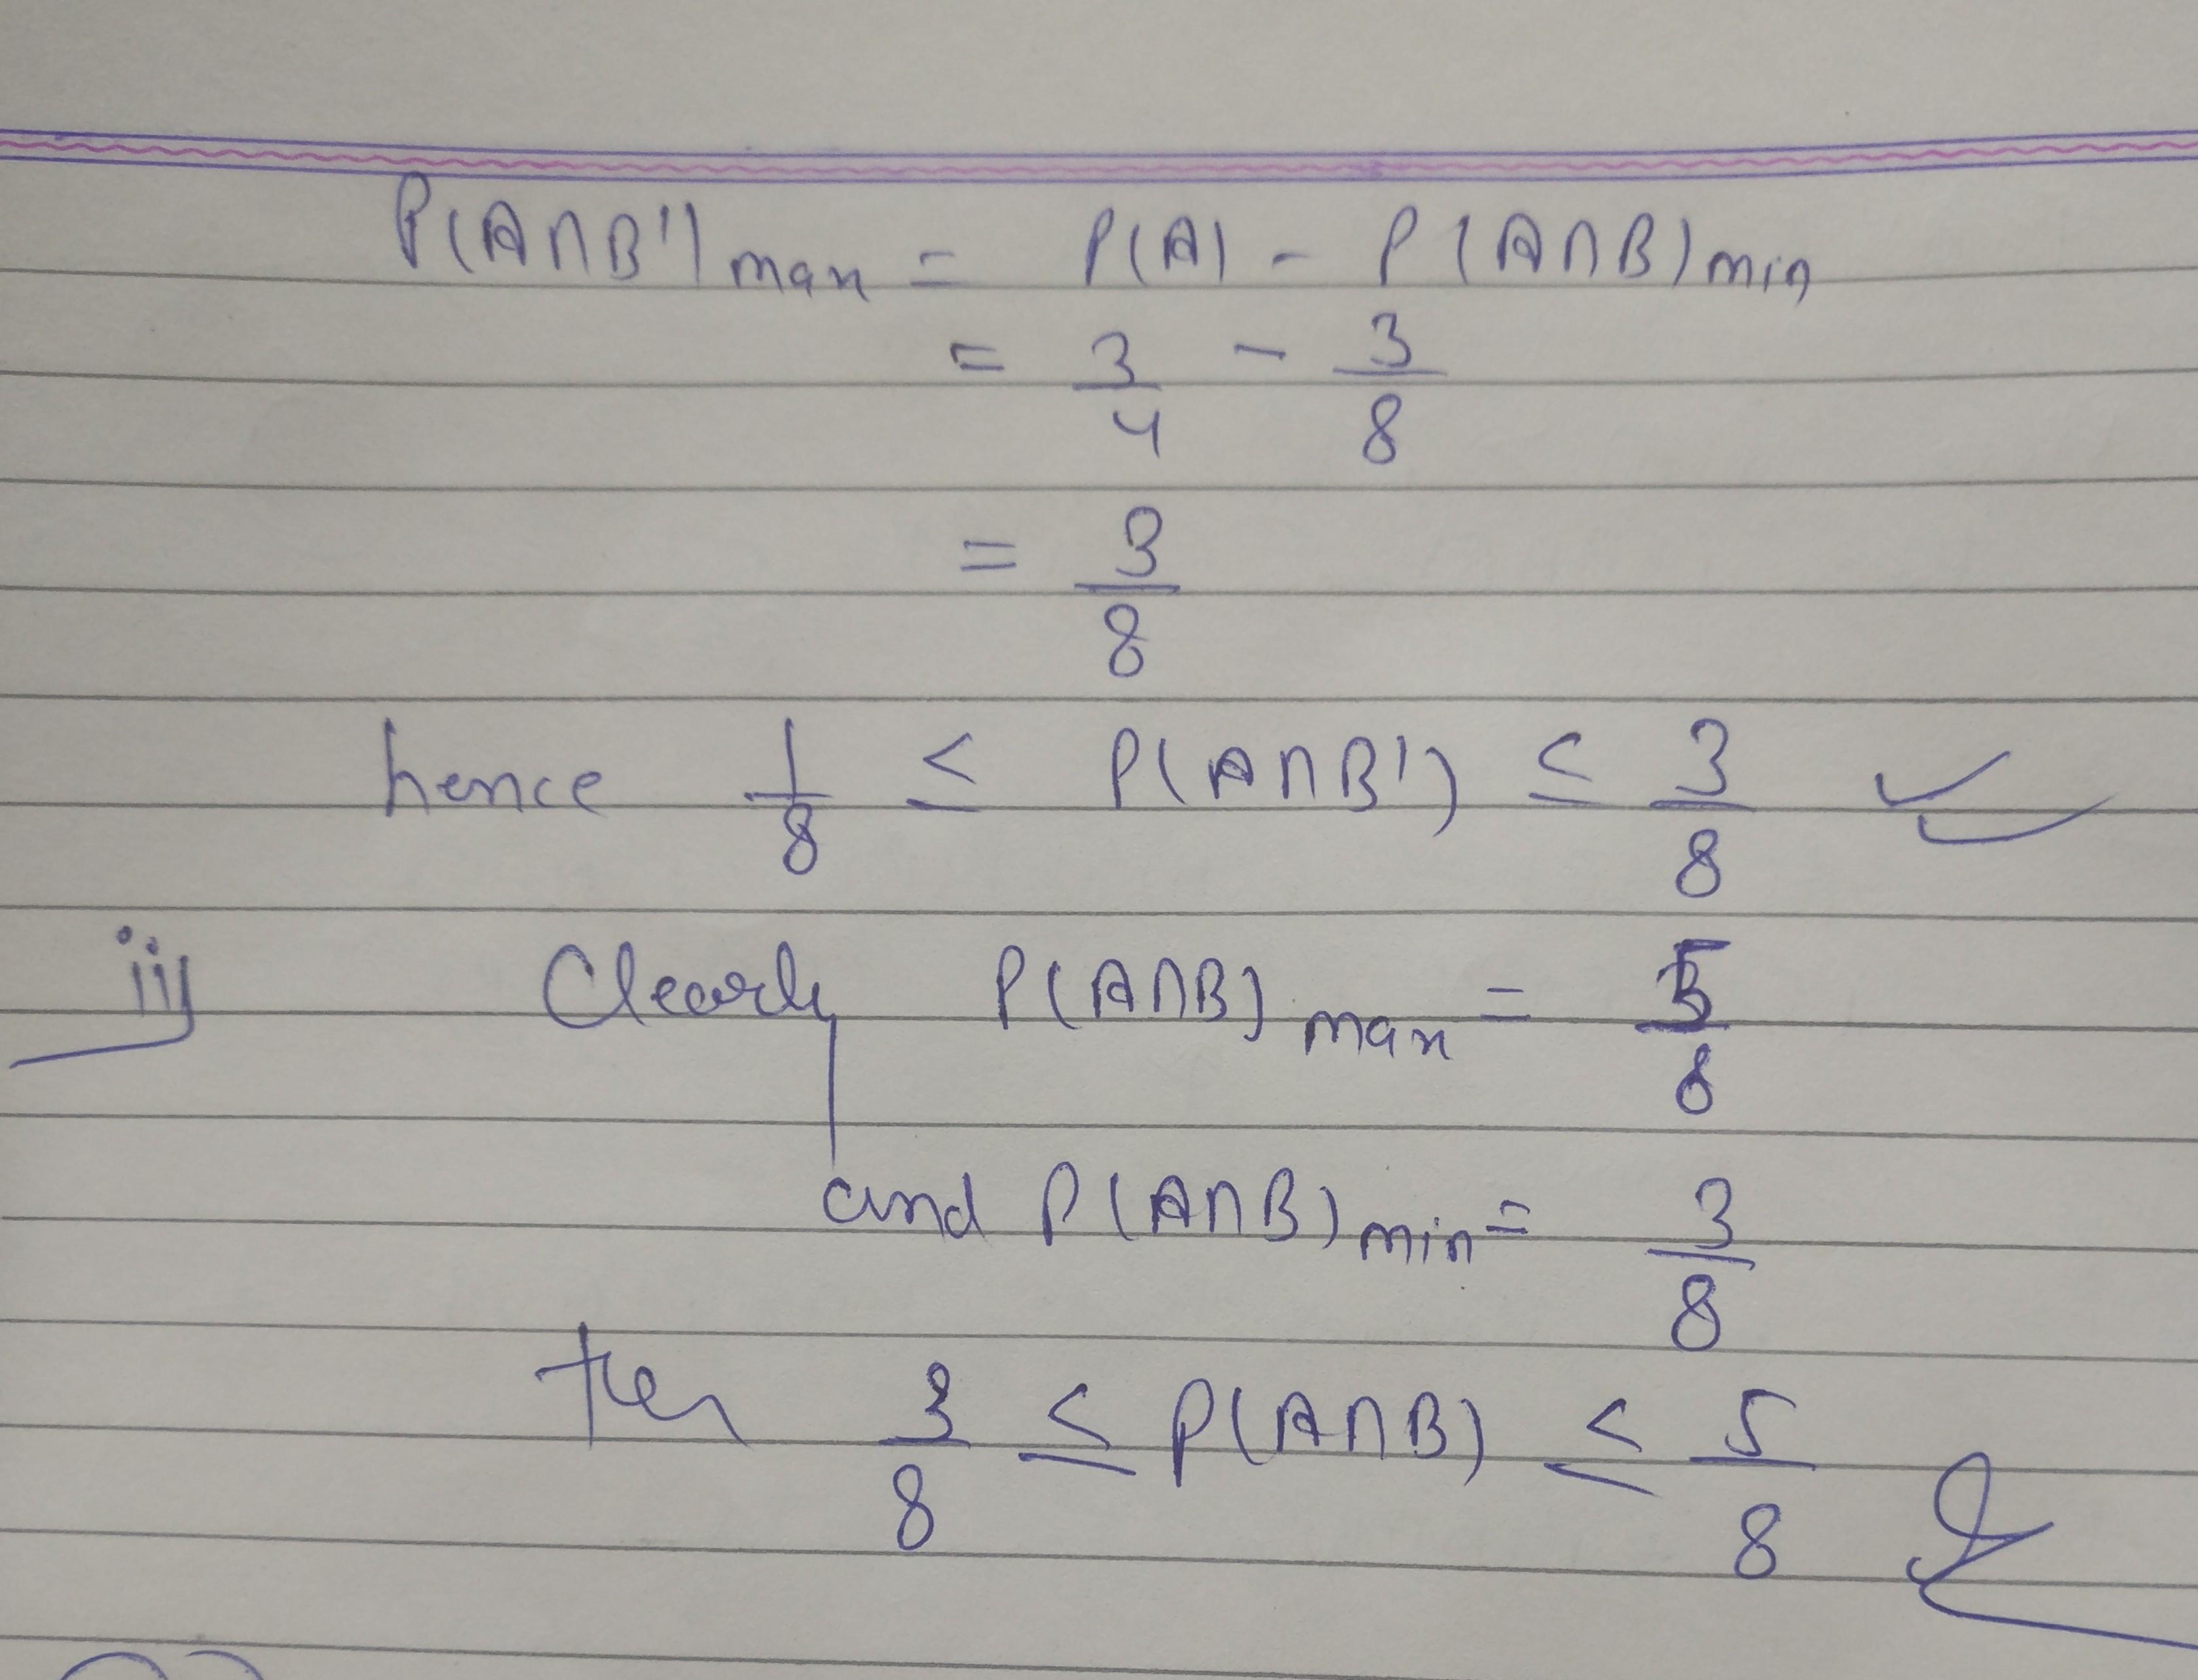 P(A∩B')max = P(A) - P(A∩B)min
= 3/4 - 3/8
= 3/8
hence 1/8 ≤ P(A∩B') ≤ 3/8
ii) Clearly P(A∩B)max = 5/8
and P(A∩B)min = 3/8
then 3/8 ≤ P(A∩B) ≤ 5/8